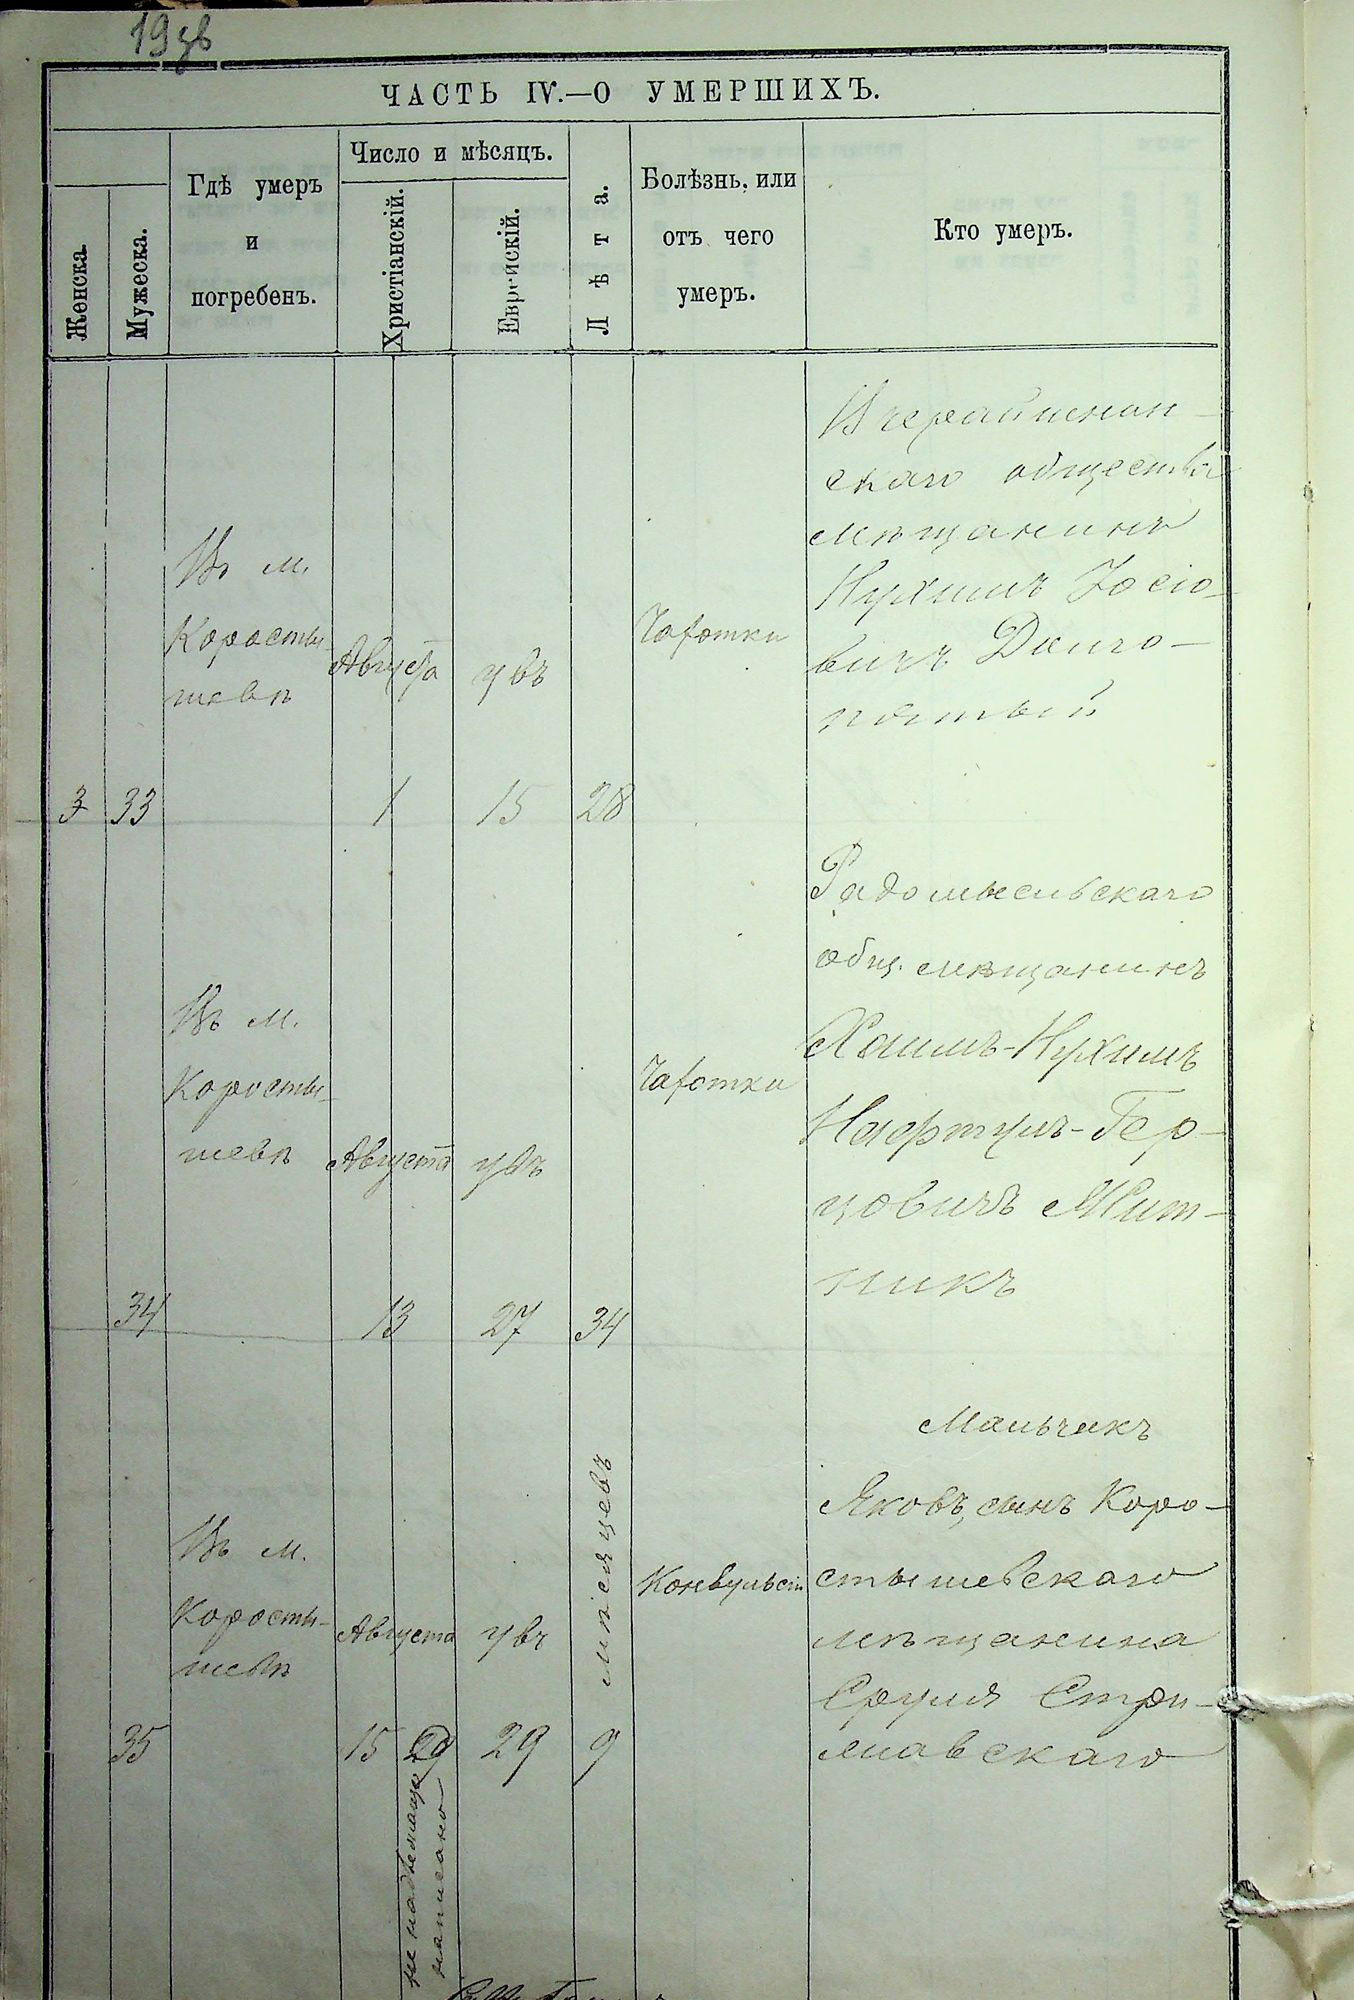 19 зв
ЧАСТЬ IV.—О УМЕРШИХЪ.
Женска.
Мужеска.
Гдѣ умеръ
и
погребенъ.
Число и мѣсяцъ.
Христіанскій.
Еврейскій.
Лѣта.
Болѣзнь, или
отъ чего
умеръ.
Кто умеръ.
3
33
Въ м.
Коросты-
шевѣ
Августа
1
15
28
Чахотки
скаго общества
мѣщанинъ
Нухимъ Іосіо-
вичъ Долго-
полый
34
Въ м.
Коросты-
шевѣ
Августа
13
27
34
Чахотки
Радомысльскаго
общ. мѣщанинъ
Хаимъ-Нухимъ
Нафтулъ-Гер-
цовичъ Жит-
никъ
35
Въ м.
Коросты-
шевѣ
Августа
15
29
не надлежаще
написано
29
мѣсяцевъ
9
Конвульсіи
Мальчикъ
Яковъ, сынъ Коро-
стышевскаго
мѣщанина
Сруля